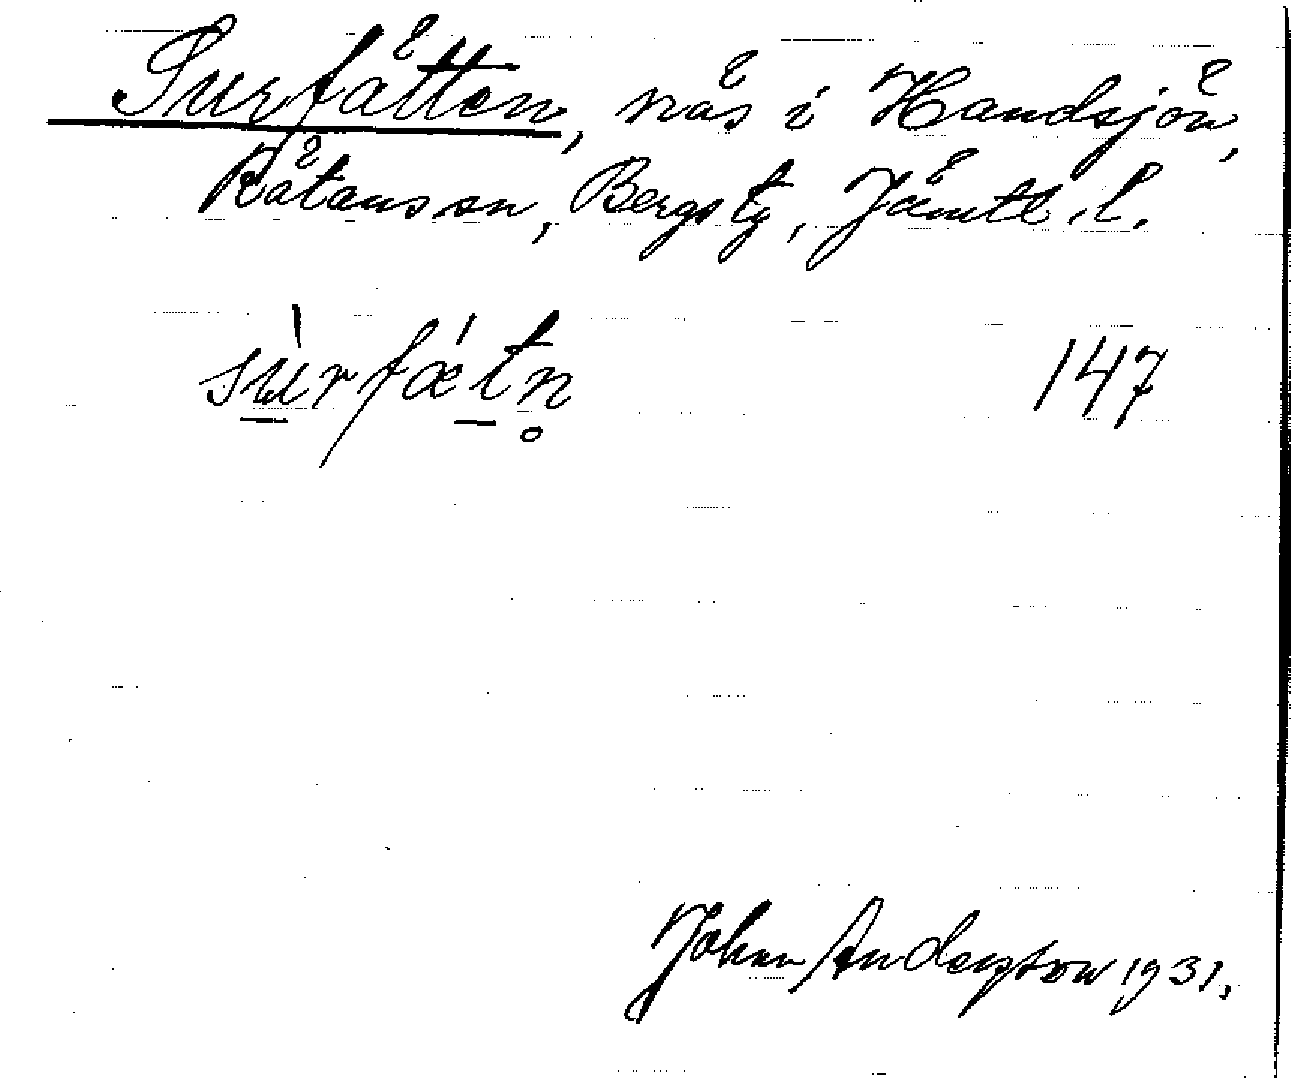 Surfätten, näs i Handsjön,
Rätans sn, Bergs tg, Jämtl. l.
sùrfæ´tn̥ 147
Johan Anderson 1931.